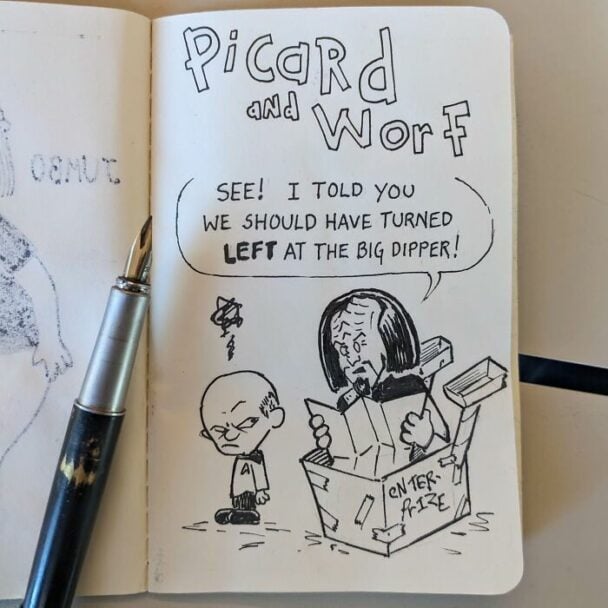 Picard
and Worf
SEE! I TOLD YOU
WE SHOULD HAVE TURNED
LEFT AT THE BIG DIPPER!
ENTER-
PRIZE